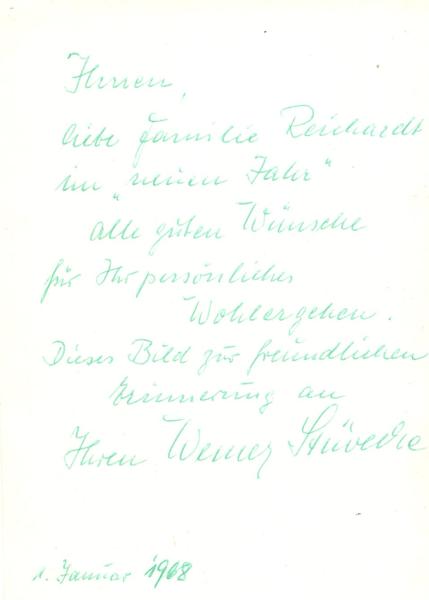 Ihnen,
liebe Familie Reichardt
im „neuen Jahr"
alle guten Wünsche
für Ihr persönliches
Wohlergehen.
Dieses Bild zur freundlichen
Erinnerung an
Ihren Werner
1. Januar 1968